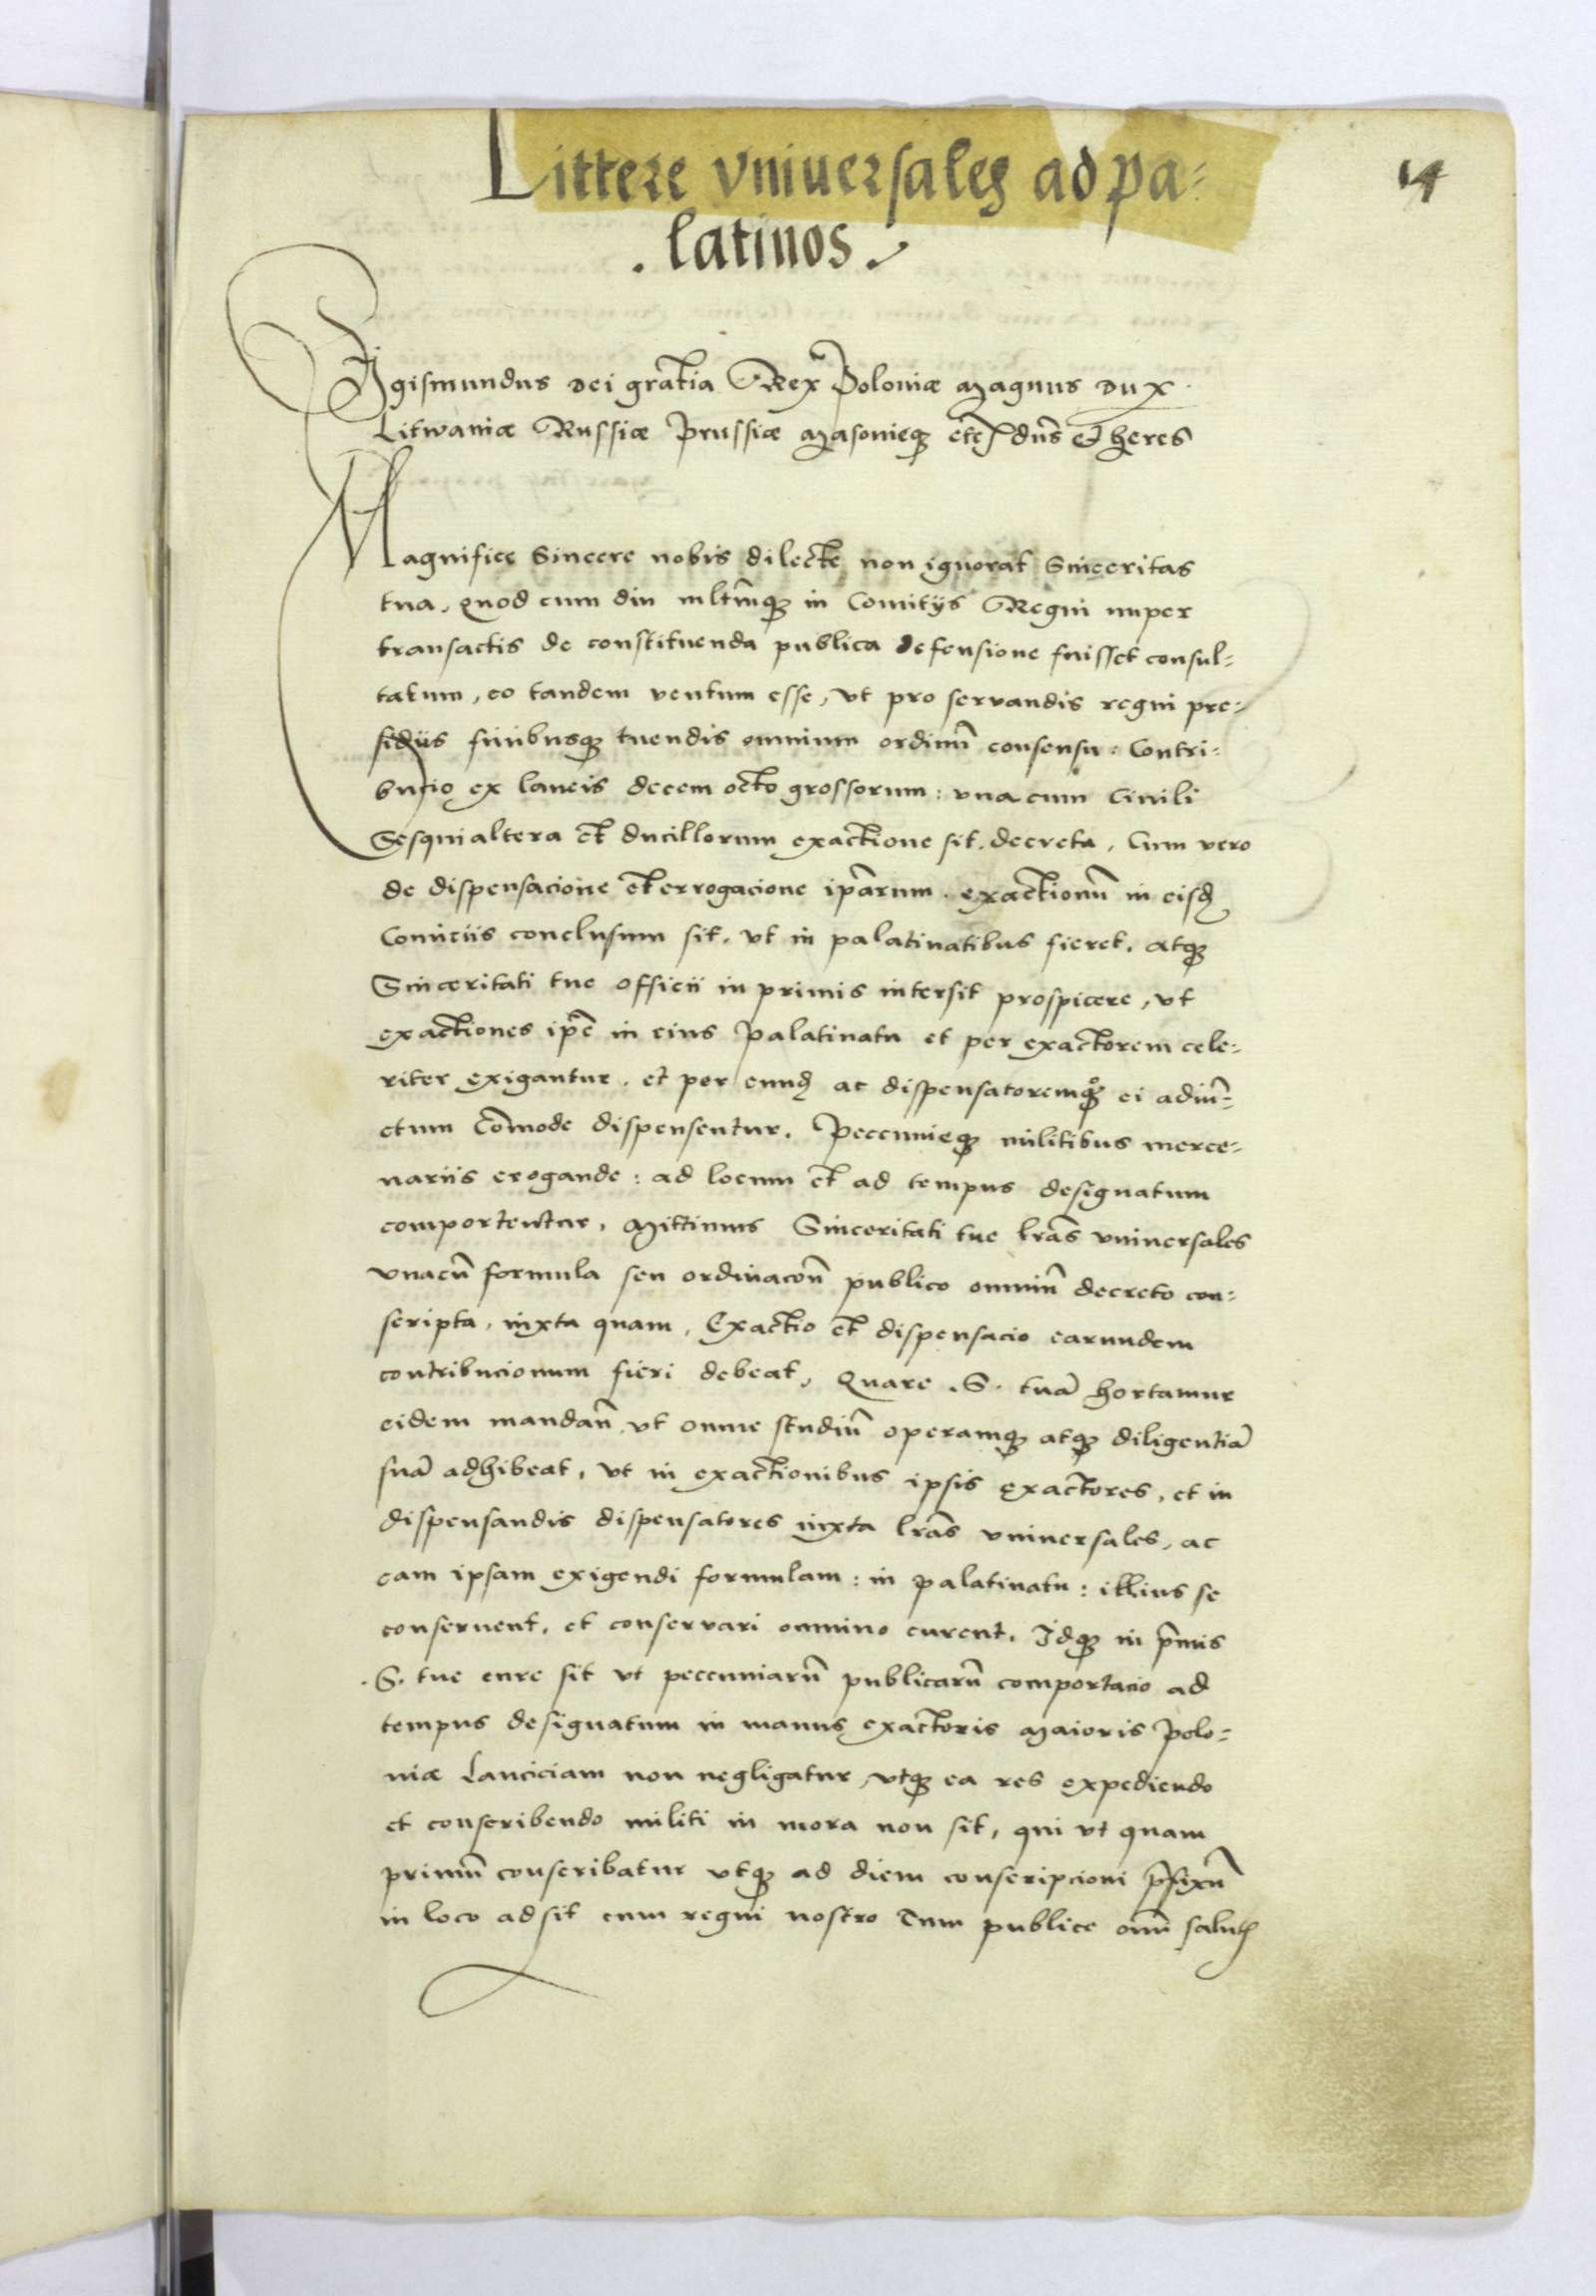 Littere vniuersales ad pa=
14
. latinos .
Sigismundus dei gratia Rex Poloniæ Magnus dux
Litwaniæ Russiæ Prussiæ Masonieq3 etc̃ dn̄s et heres
Magnifice Sincere nobis dilecte non ignorat Sinceritas
tua, Quod cum diu mltm̄q3 in Comitijs Regni nuper
transactis de constituenda publica defensione fuisset consul=
tatum, eo tandem ventum esse, vt pro servandis regni pre=
sidiis finibusq3 tuendis omnium ordinū consensu: Contri=
bucio ex laneis decem octo grossorum: vna cum Ciuili
Sesquialtera et ducillorum exactione sit. decreta, Cum vero
de dispensacione et errogacione ip̄arum. exactionū in eisd
Comiciis conclusum sit, vt in palatinatibus fieret, atq3
Sinceritati tue officii in primis intersit prospicere, vt
exactiones ip̄e in eius Palatinatu et per exactorem cele=
riter exigantur, et per eund ac dispensatoremq3 ei adiū=
ctum Cōmode dispensentur, Peccunieq3 militibus merce=
nariis erogande: ad locum et ad tempus designatum
comportentur, Mittimus Sinceritati tue lr̄as vniuersales
vnacū formula seu ordinacōn publico omniū decreto con=
scripta, iuxta quam, Exactio et dispensacio earundem
contribucionum fieri debeat, Quare .S. tuā hortamur
eidem mandan̄, vt omne studiū operamq3 atq3 diligentiā
suā adhibeat, vt in exactionibus ipsis exactores, et in
dispensandis dispensatores iuxta lr̄as vniuersales, ac
eam ipsam exigendi formulam: in palatinatu: illius se
conseruent, et conservari omnino curent. Idq3 in p̄mis
.S. tue cure sit vt peccuniarū publicarū comportacio ad
tempus designatum in manus exactoris Maioris Polo=
niæ Lanciciam non negligatur, vtq3 ea res expediendo
et conscribendo militi in mora non sit, qui vt quam
primū conscribatur vtq3 ad diem conscripcioni p̄fixū
in loco adsit cum regni nostro tum publice om̄i salut